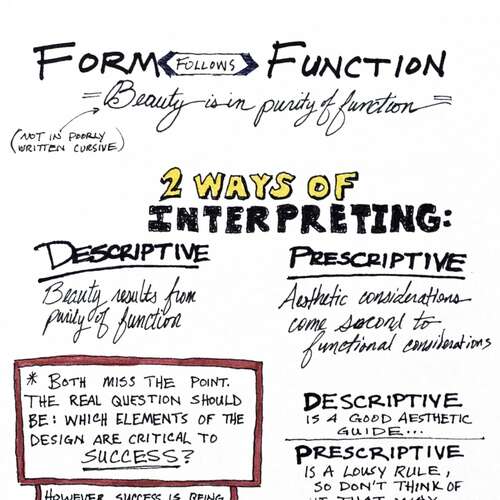 FORM FOLLOWS FUNCTION
= Beauty is in purity of function =
(NOT IN POORLY
WRITTEN CURSIVE)
2 WAYS OF
INTERPRETING:
DESCRIPTIVE
Beauty results from
purity of function
PRESCRIPTIVE
Aesthetic considerations
come second to
functional considerations
* BOTH MISS THE POINT.
THE REAL QUESTION SHOULD
BE: WHICH ELEMENTS OF THE
DESIGN ARE CRITICAL TO
SUCCESS?
HOWEVER SUCCESS IS BEING
DESCRIPTIVE
IS A GOOD AESTHETIC
GUIDE...
PRESCRIPTIVE
IS A LOUSY RULE,
SO DON'T THINK OF
IT THAT WAY